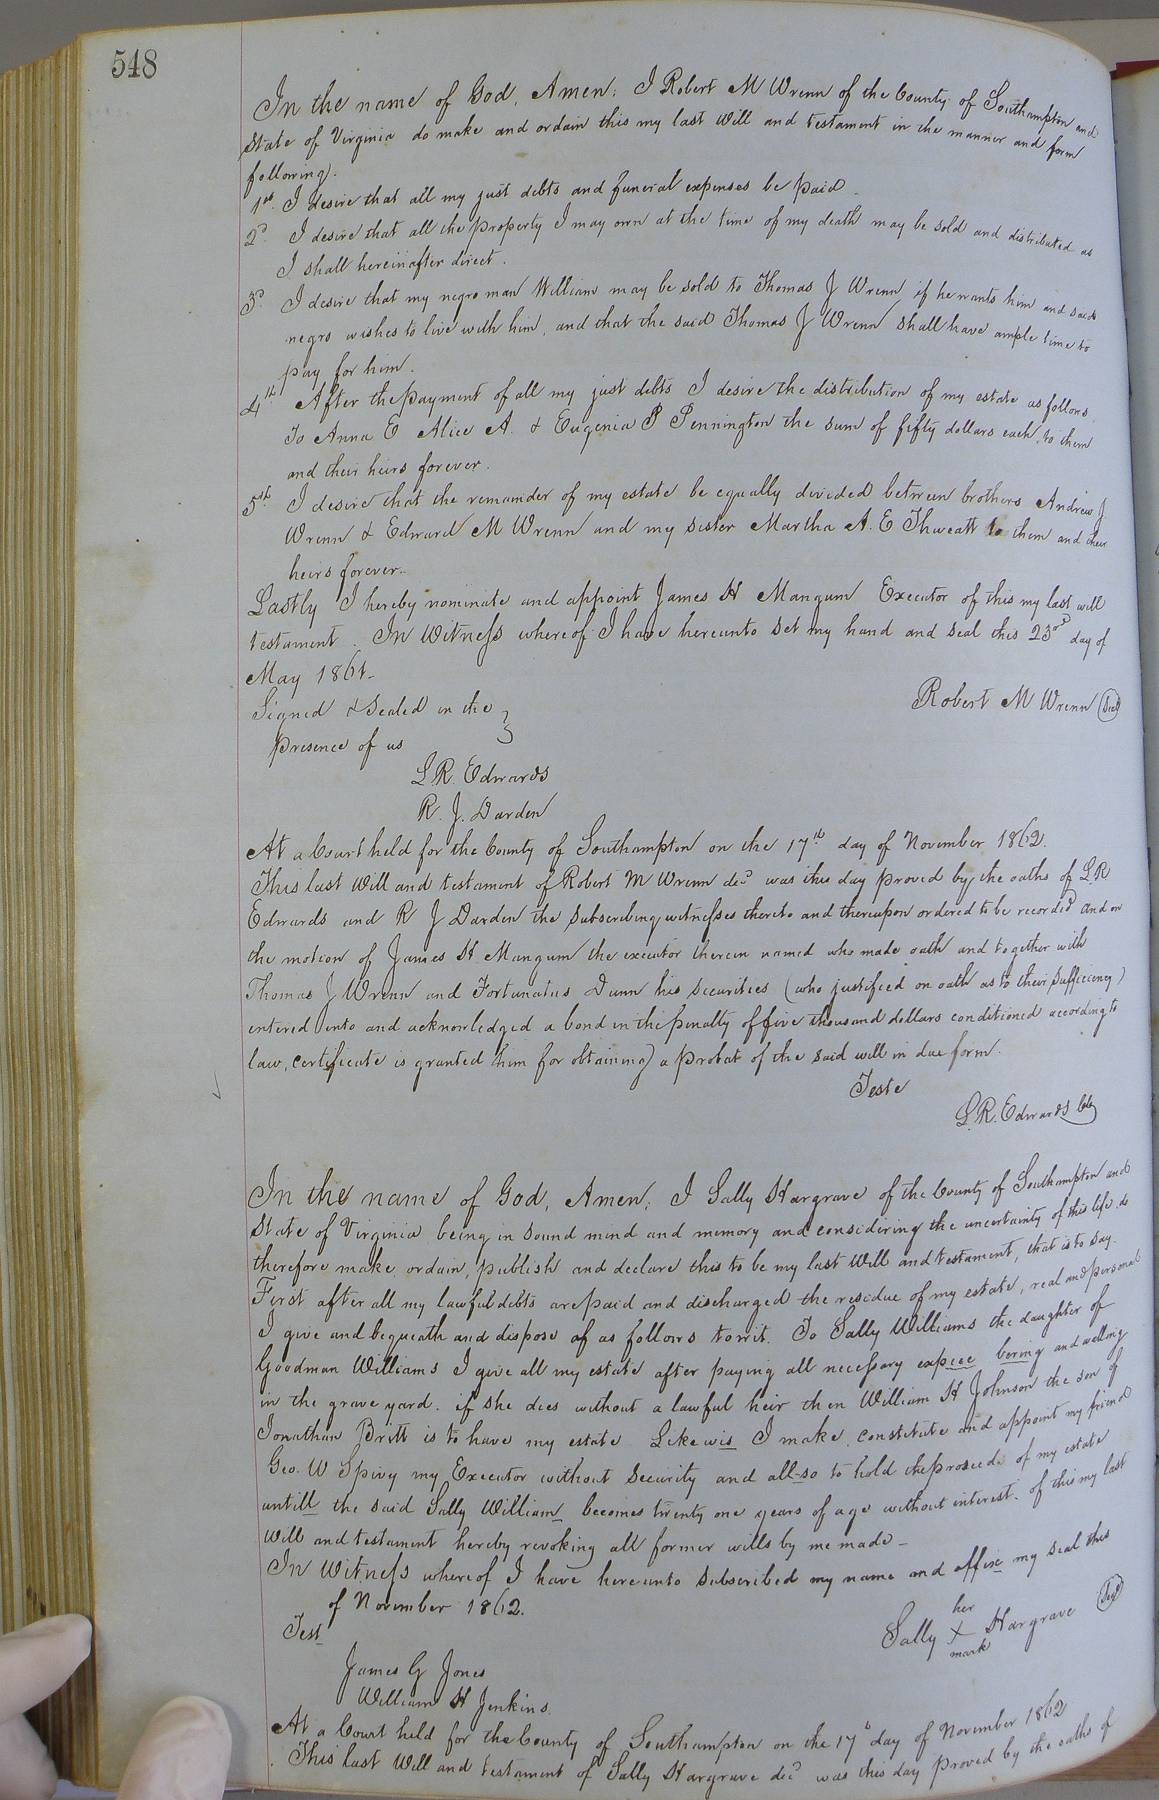 548
In the name of God, Amen; I Robert M Wrenn of the County of Southampton and
State of Virginia do make and ordain this my last Will and testament in the manner and form
following.
1st. I desire that all my just debts and funeral expenses be paid.
2d. I desire that all the property I may own at the time of my death may be sold and distributed as
I shall hereinafter direct.
3d. I desire that my negro man William may be sold to Thomas J Wrenn if he wants him and said
negro wishes to live with him, and that the said Thomas J Wrenn shall have ample time to
pay for him.
4th. After the payment of all my just debts I desire the distribution of my estate as follows.
To Anna E Alice A. & Eugenia P Pennington the sum of fifty dollars each, to them
and their heirs forever.
5th. I desire that the remainder of my estate be equally divided between brothers Andrew J.
Wrenn & Edward M Wrenn and my sister Martha A. E Thweatt to them and their
heirs forever.
Lastly I hereby nominate and appoint James H Mangum Executor of this my last will
testament. In Witness whereof I have hereunto set my hand and seal this 23rd day of
May 1861.
Robert M Wrenn (Seal)
Signed & Sealed in the }
presence of us
L R. Edwards
R. J. Darden
At a Court held for the County of Southampton on the 17th day of November 1862.
This last Will and testament of Robert M Wrenn decd was this day proved by the oaths of L R
Edwards and R J Darden the subscribing witnesses thereto and thereupon ordered to be recorded and on
the motion of James H. Mangum the executor therein named who made oath and together with
Thomas J Wrenn and Fortunatus Dunn his securities (who justified on oath as to their sufficiency)
entered into and acknowledged a bond in the penalty of five thousand dollars conditioned according to
law, certificate is granted him for obtaining a probat of the said will in due form.
Teste
L. R. Edwards Clk
In the name of God, Amen; I Sally Hargrave of the County of Southampton and
State of Virginia being in sound mind and memory and considiring the uncertainty of this life do
therefore make, ordain, publish and declare this to be my last Will and testament, that is to say.
First after all my lawful debts are paid and discharged the residue of my estate, real and personal
I give and bequeath and dispose of as follows to wit. To Sally Williams the daughter of
Goodman Williams I give all my estate after paying all necessary expece bering and welling
in the grave yard. if she dies without a lawful heir then William H Johnson the son of
Jonathan Britt is to have my estate Likewis I make, constitute and appoint my friend
Geo. W Spivy my Executor without Security and all-so to hold the proseeds of my estate
untill the said Sally William becomes twenty one years of age without interest. of this my last
Will and testament hereby revoking all former wills by me made -
In Witness whereof I have hereunto subscribed my name and affixe my seal this
of November 1862.
her
Sally X Hargrave (Seal)
mark
Test
James G Jones
William H Jenkins.
At a Court held for the County of Southampton on the 17th day of November 1862
This last Will and testament of Sally Hargrave decd was this day proved by the oaths of